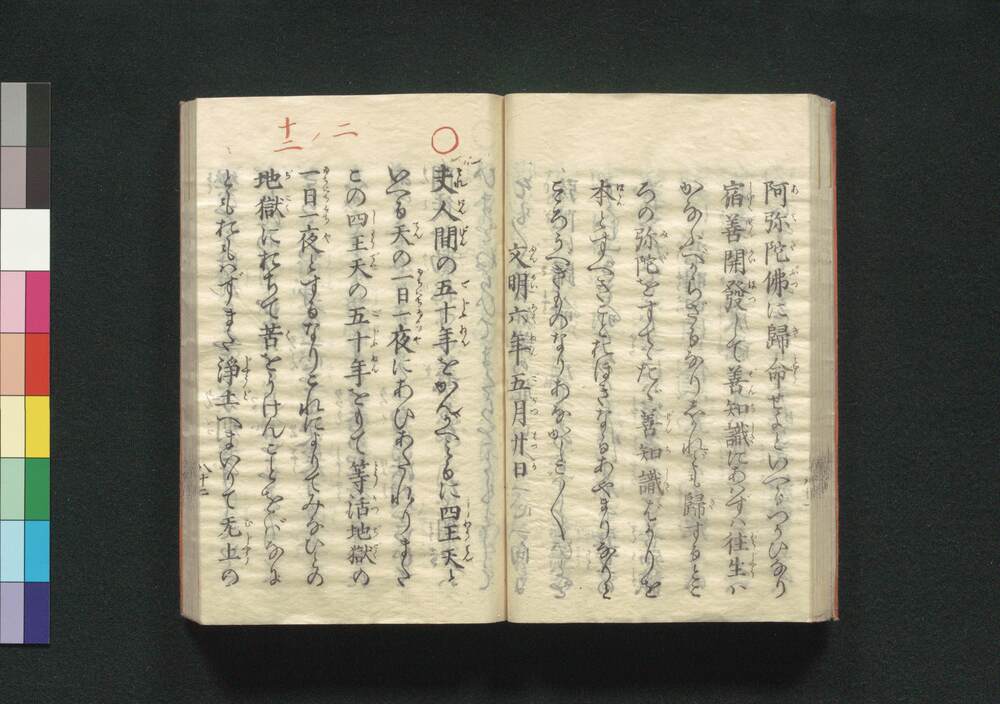 阿弥陀佛に歸命せよといへるつかひなり
宿善開發して善知識にあはすは往生は
かなふへからさるなりしかれとも歸するところ
の弥陀をすてゝたゝ善知識はかりを
本とすへきことおほきなるあやまりなりと
こゝろうへきものなりあなかしこ〱
文明六年五月廿日
二ノ十二
夫人間の五十年をかんかへみるに四王天と
いへる天の一日一夜にあひあたれりまた
この四王天の五十年をもて等活地獄の
一日一夜とするなりこれによりてみなひとの
地獄におちて苦をうけんことをはなにとも
おもはすまた淨土へまいりて无上の
八十二